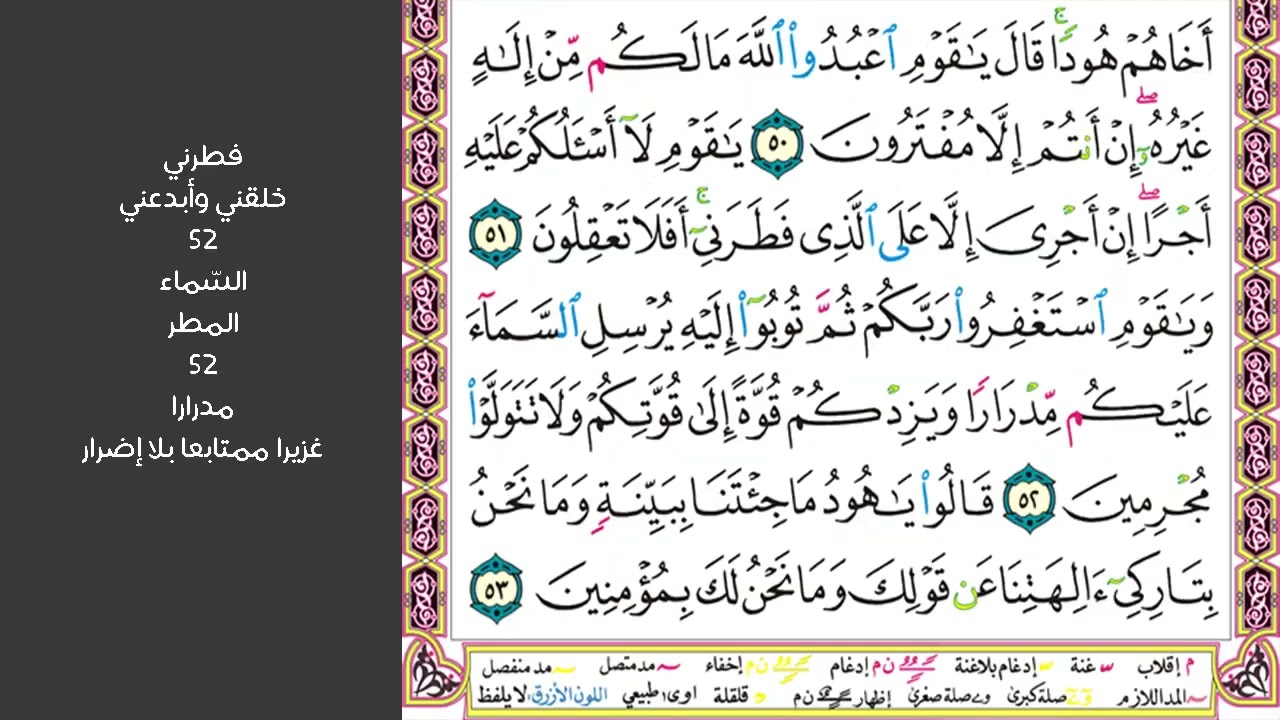 فطرني
خلقني وأبدعني
52
السّماء
المطر
52
مدرارا
غزيرا ممتابعا بلا إضرار
أَخَاهُمۡ هُودٗاۚ قَالَ يَٰقَوۡمِ ٱعۡبُدُواْ ٱللَّهَ مَا لَكُم مِّنۡ إِلَٰهٍ
غَيۡرُهُۥٓۖ إِنۡ أَنتُمۡ إِلَّا مُفۡتَرُونَ ٥٠ يَٰقَوۡمِ لَآ أَسۡـَٔلُكُمۡ عَلَيۡهِ
أَجۡرًاۖ إِنۡ أَجۡرِىَ إِلَّا عَلَى ٱلَّذِى فَطَرَنِىٓۚ أَفَلَا تَعۡقِلُونَ ٥١
وَيَٰقَوۡمِ ٱسۡتَغۡفِرُواْ رَبَّكُمۡ ثُمَّ تُوبُوٓاْ إِلَيۡهِ يُرۡسِلِ ٱلسَّمَآءَ
عَلَيۡكُم مِّدۡرَارٗا وَيَزِدۡكُمۡ قُوَّةً إِلَىٰ قُوَّتِكُمۡ وَلَا تَتَوَلَّوۡاْ
مُجۡرِمِينَ ٥٢ قَالُواْ يَٰهُودُ مَا جِئۡتَنَا بِبَيِّنَةٖ وَمَا نَحۡنُ
بِتَارِكِىٓ ءَالِهَتِنَا عَن قَوۡلِكَ وَمَا نَحۡنُ لَكَ بِمُؤۡمِنِينَ ٥٣
م إقلاب غنة إدغام بلاغنة ن م إدغام ن م إخفاء مد متصل مد منفصل
المد اللازم صلة كبرى و ے صلة صغرى إظهار ن م قلقلة اوى طبيعي اللون الأزرق لا يلفظ